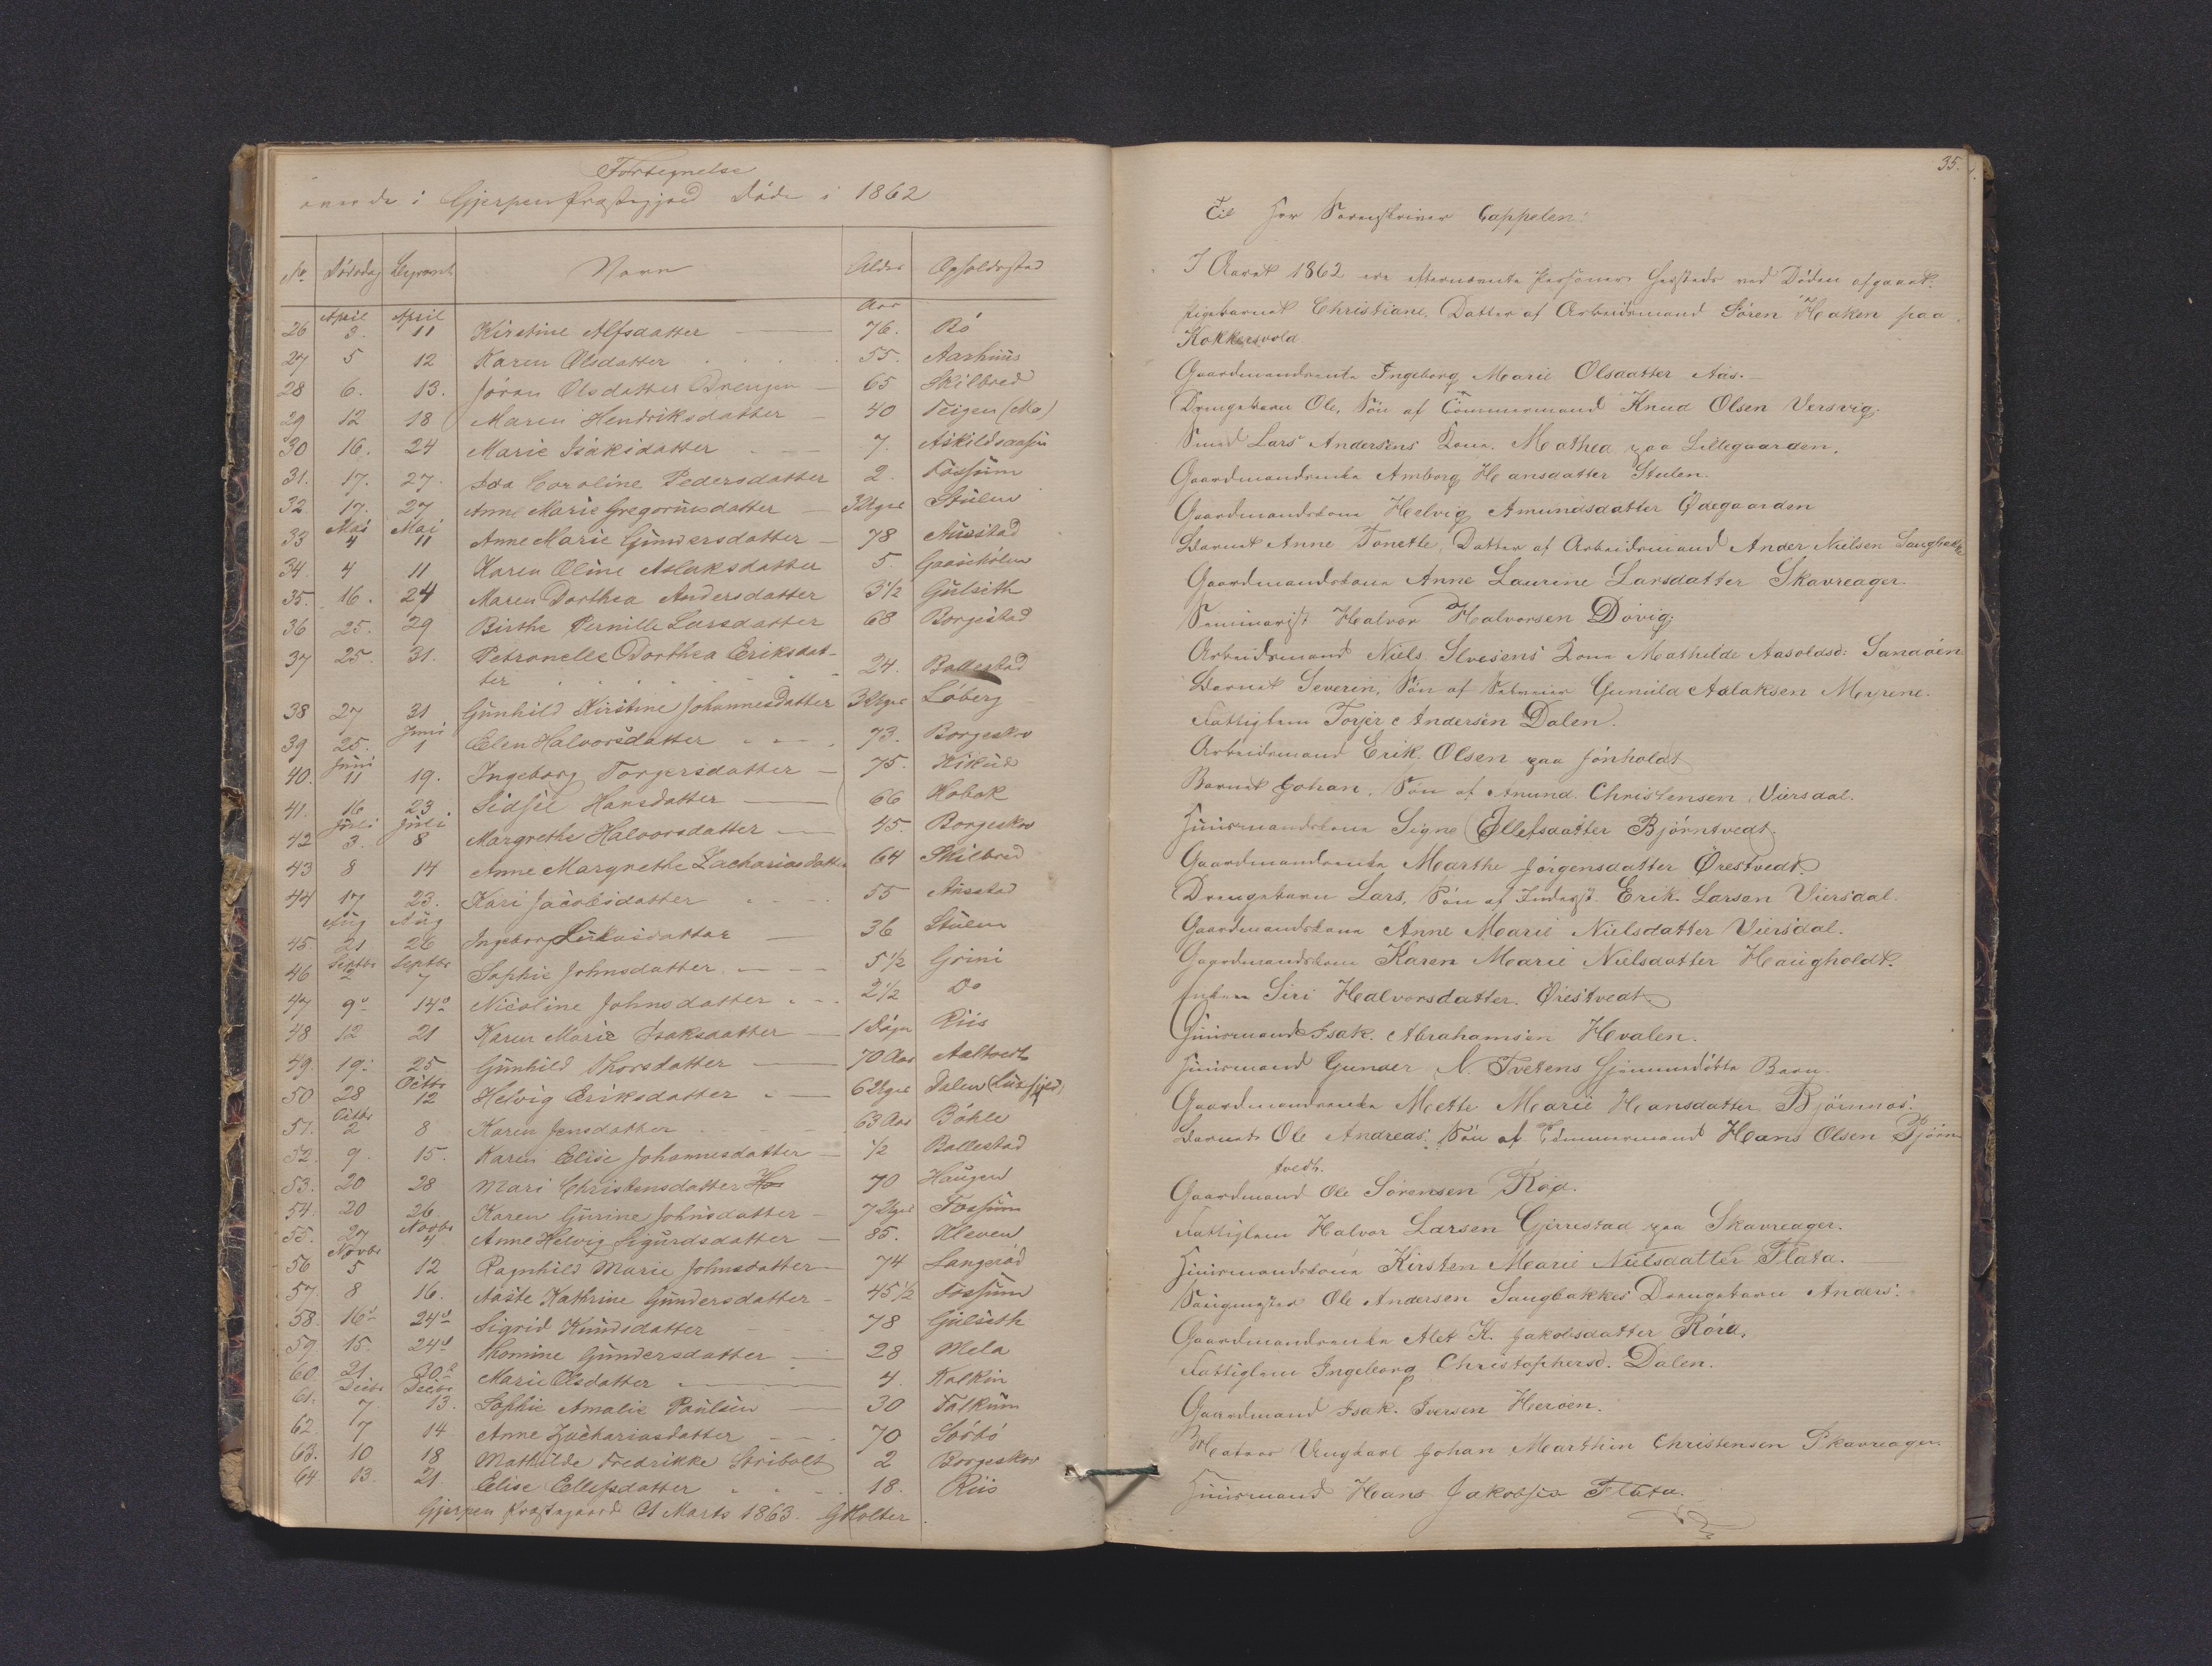 Fortegnelse
over de i Gjerpen Præstegjeld Døde i 1862
No Dødsdag Begravet Navn Alder Opholdssted
Aar
26 April 3. April 11 Kirstine Alfsdatter 76. Bø
27 5 12 Karen Olsdatter 55. Aarhuus
28 6. 13. Jøran Olsdatter 65 Skilbred
29 12 18 Maren Hendriksdatter 40 Teigen (Mo)
30 16. 24 Marie Isaksdatter 7.
31. 17. 27. Ida Caroline Pedersdatter 2. Fossum
32. 17. 27 Anne Marie Gregoriusdatter 3 Uger Stulen
33 Mai 4 Mai 11 Anne Marie Gundersdatter 78 Auestad
34. 4 11 Karen Oline Aslaksdatter 5 Graaeholen
35. 16. 24 Maren Dorthea Andersdatter 3 1/2 Gulseth
36 25. 29 Birthe Pernille Larsdatter 68 Borgestad
37 25. 31. Petronelle Dorthea Eriksdat-
ter 24. Ballestad
38 27 31 Gunhild Kirstine Johannesdatter 3 Uger Løberg
39 25. Juni 1 Elen Halvorsdatter 73. Borgeskov
40. Juni 11 19. Ingeborg Torgersdatter 75. Kikud
41. 16 23. Sidsel Hansdatter 66 Kobak
42 Juli 3. Juli 8 Margrethe Halvorsdatter 45. Borgeskov
43 8 14 Anne Margrethe Zachariasdatter 64 Skilbred
44 17 23. Kari Jacobsdatter 55 Auestad
45 Aug 21 Aug 26 Ingeborg Lukasdatter 36 Stulen
46 Septbr 2 Septbr 7 Sophie Johnsdatter 5 1/2 Grini
47 9 14 Nicoline Johnsdatter 2 1/2 Do
48 12 21 Karen Marie Isaksdatter 1 Døgn Riis
49. 19. 25 Gunhild Thorsdatter 70 Aar Aaltvedt
50 28 Octbr 12 Helvig Eriksdatter 6 Uger Dalen (Luksfjeld)
51. Octbr 2 8 Karen Jensdatter 63 Aar Bøhle
52. 9. 15. Karen Elise Johannesdatter 1/2 Ballestad
53. 20 28 Mari Christensdatter Ha 70 Haugen
54. 20 26. Karen Gurine Johnsdatter 7 Uger Fossum
55. 27 Novbr 4 Anne Helvig Sigurdsdatter 85. Kleven
56 Novbr 5 12 Ragnhild Marie Johnsdatter 74 Langerød
57. 8 16. Aaste Kathrine Gundersdatter 45 1/2 Fossum
58. 16 24 Sigrid Knudsdatter 78 Gulseth
59. 15. 24 Thomine Gundersdatter 28 Mela
60. 21. 30 Marie Olsdatter 4. Kalkin
61. Decbr 7 Decbr 13. Sophie Amalie Paulsen 30 Falkum
62. 7 14 Anne Zachariasdatter 70 Sørbø
63. 10 18 Mathilde Fredrikke Stribolt 2 Borgeskov
64. 13. 21. Elise Ellefsdatter 18. Riis
Gjerpen Præstegaard 21 Marts 1863. G Holter
35.
Til Hr Sorenskriver Cappelen:
I Aaret 1862 ere efternævnte Personer herstede ved Døden afgaaet:
Pigebarnet Christiane, Datter af Arbeidsmand Søren Haken paa
Kokkersvold
Gaardmandsenke Ingeborg Marie Olsdatter Aas.
Drengebarn Ole, Søn af Tømmermand Knud Olsen Versvig.
Smed Lars Andersens Kone Mathea paa Lillegaarden.
Gaardmandsenke Amborg Hansdatter Stulen.
Gaardmandskone Helvig Amundsdatter Ødegaarden
Barnet Anne Tonette, Datter af Arbeidsmand Ander Nielsen Saugbakke
Gaardmandskone Anne Laurine Larsdatter Skavreager.
Seminarist Halvor Halvorsen Døvig.
Arbeidsmand Niels Ilvesens Kone Mathilde Aasoldsd: Sandøen
Barnet Severin, Søn af Gunuld Aslaksen Meyrene.
Fattiglem Torjer Andersen Dalen.
Arbeidsmand Erik Olsen paa Jønholdt
Barnet Johan, Søn af Anund Christensen Viersdal.
Huusmandskone Signe Ellefsdatter Bjørntvedt.
Gaardmandsenke Marthe Jørgensdatter Ørestvedt.
Drengebarn Lars, Søn af Inderst Erik Larsen Viersdal.
Gaardmandskone Anne Marie Nielsdatter Viersdal.
Gaardmandskone Karen Marie Nielsdatter Haugholdt.
Enken Siri Halvorsdatter Ørestvedt
Huusmand Isak Abrahamsen Hvalen.
Huusmand Gunder N. Tvetens hjemmedøbte Barn.
Gaardmandsenke Mette Marie Hansdatter Bjørnnæs.
Barnet Ole Andreas, Søn af Tømmermand Hans Olsen Bjørn
tvedt.
Gaardmand Ole Sørensen Rød.
Fattiglem Halvor Larsen Gjerrestad paa Skavreager.
Huusmandskone Kirsten Marie Nielsdatter Flata.
Saugmester Ole Andersen Saugbakkes Drengebarn Anders.
Gaardmandsenke Alet K. Jakobsdatter Røra.
Fattiglem Ingeborg Christophersd. Dalen.
Gaardmand Isak Iversen Herøen.
Matros Ungkarl Johan Marthin Christensen Skavreager
Huusmand Hans Jakobsen Flata.